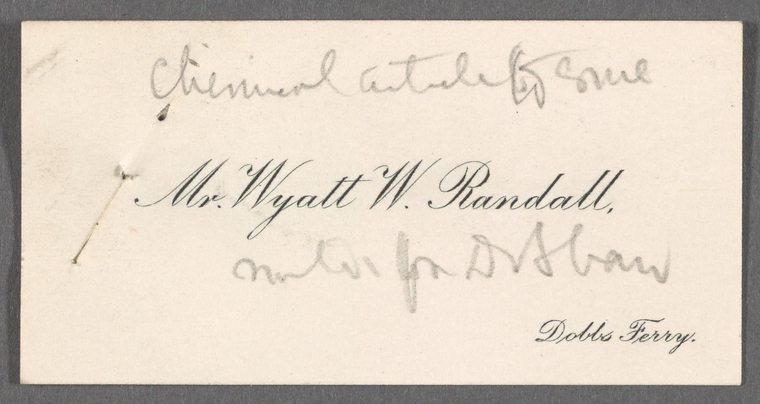 Chemical article & some
Mr. Wyatt W. Randall.
notes for Dr Shaw
Dobbs Ferry.